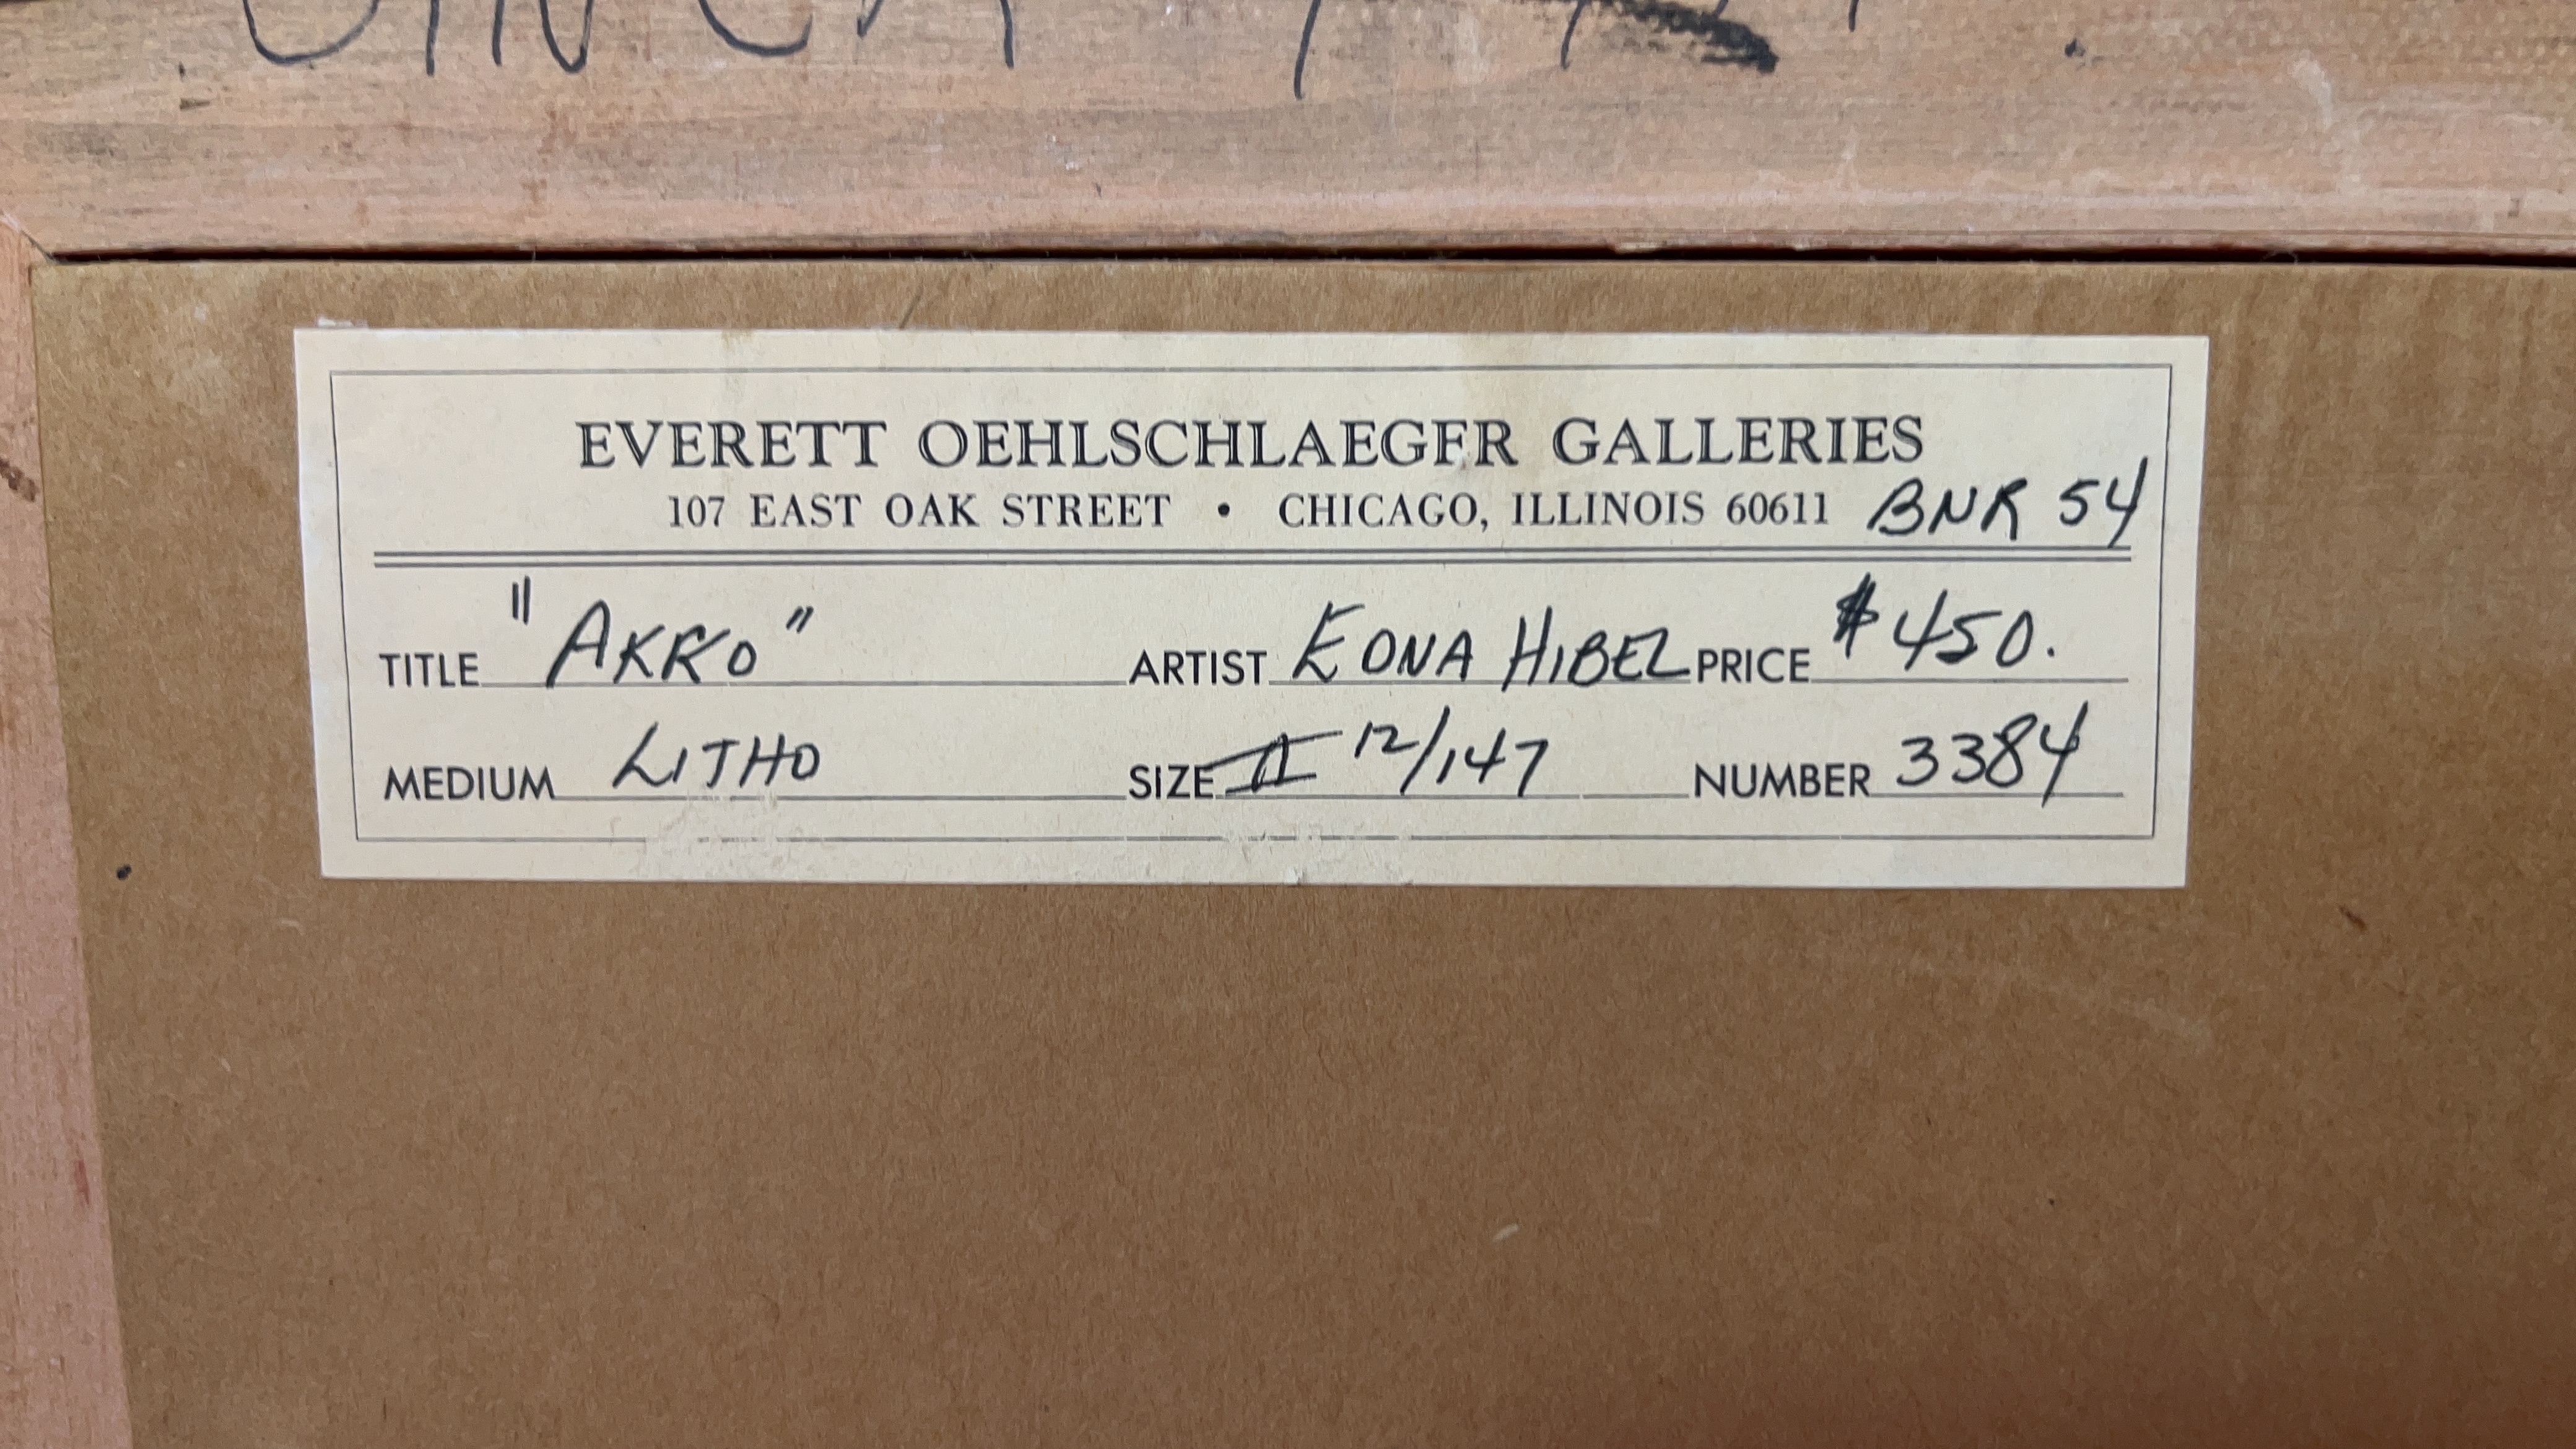 EVERETT OEHLSCHLAEGER GALLERIES
107 EAST OAK STREET • CHICAGO, ILLINOIS 60611 BNR 54
TITLE "AKKO" ARTIST EDNA HIBEL PRICE $450.
MEDIUM LITHO SIZE 12/147 NUMBER 3384